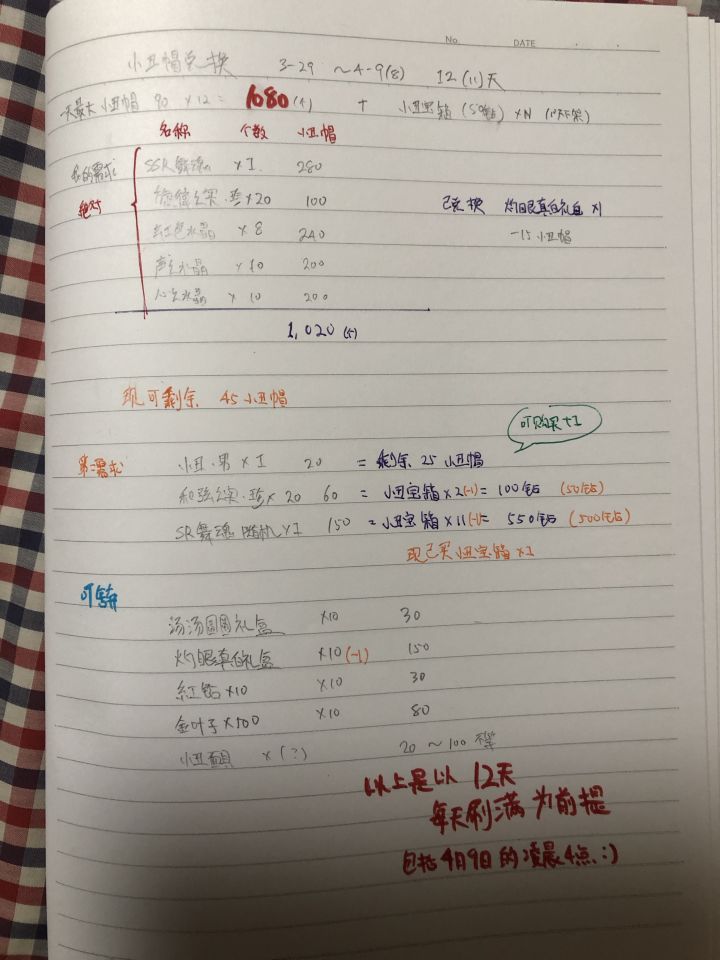 No.
DATE
小丑帽兑换 3-29 ~4-9(8) 12(11)天
一天最大小丑帽 90 ×12= 1080(4) + 小丑宝箱(50钻)×N
名称 个数 小丑帽
我的需求
绝对
SSR舞魂 ×1 280
之实·珍×20 100
已兑换 灼眼真白礼盒×1
红色水晶 ×8 240
-15小丑帽
声之水晶 ×10 200
心之水晶 ×10 200
1,020(5)
现可剩余 45小丑帽
可购买+1
第二需求
小丑·男×1 20 =剩余25小丑帽
和弦之实·珍×20 60 =小丑宝箱×2(-1)=100钻 (50钻)
SR舞魂随机×1 150 =小丑宝箱×11(-1)= 550钻 (500钻)
现已买小丑宝箱×1
可舍弃
汤汤圆圆礼盒 ×10 30
灼眼真白礼盒 ×10(-1) 150
红钻×10 ×10 30
金叶子×500 ×10 80
小丑 ×(?) 20~100不等
以上是以12天
每天刷满为前提
包括4月9日的凌晨4点:)